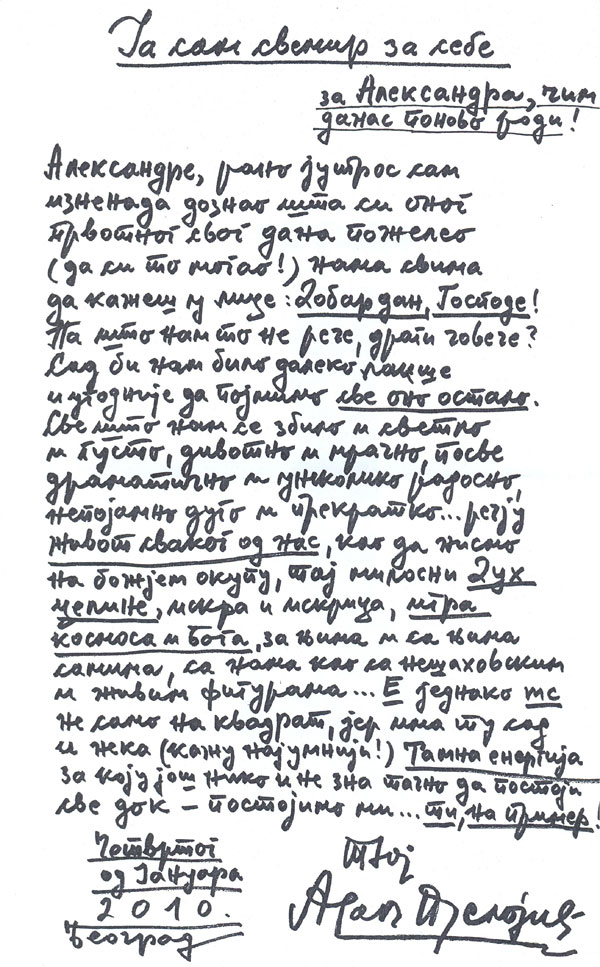 Ја сам свемир за себе
за Александра, чим
данас поново роди!
Александре, рано јутрос сам
изненада дознао шта си оног
првотног свог дана пожелео
(да си то могао!) нама свима
да кажеш у лице: Добар дан, Господе!
Па што нам то не рече, драги човече?
Сад би нам било далеко лакше
и угодније да појмимо све оно остало.
Све што нам се збило и светло
и густо, дивотно и мрачно, посве
драматично и унеколико радосно,
непојамно дуго и прекратко... речју
живот сваког од нас, као да нисмо
на божјем окупу, тај милосни Дух
целине, искра и искрица, игра
космоса и Бога, за њима и са њима
самима, са нама као са нешаховским
и живим фигурама... Е једнако mc
не само на квадрат, јер има ту сад
и нека (кажу најумнији!) Тамна енергија
за коју још нико и не зна тачно да постоји
све док – постојимо ми... ти, на пример!
Четвртог
од Јануара
2010.
Београд
Твој
Адам Пуслојић